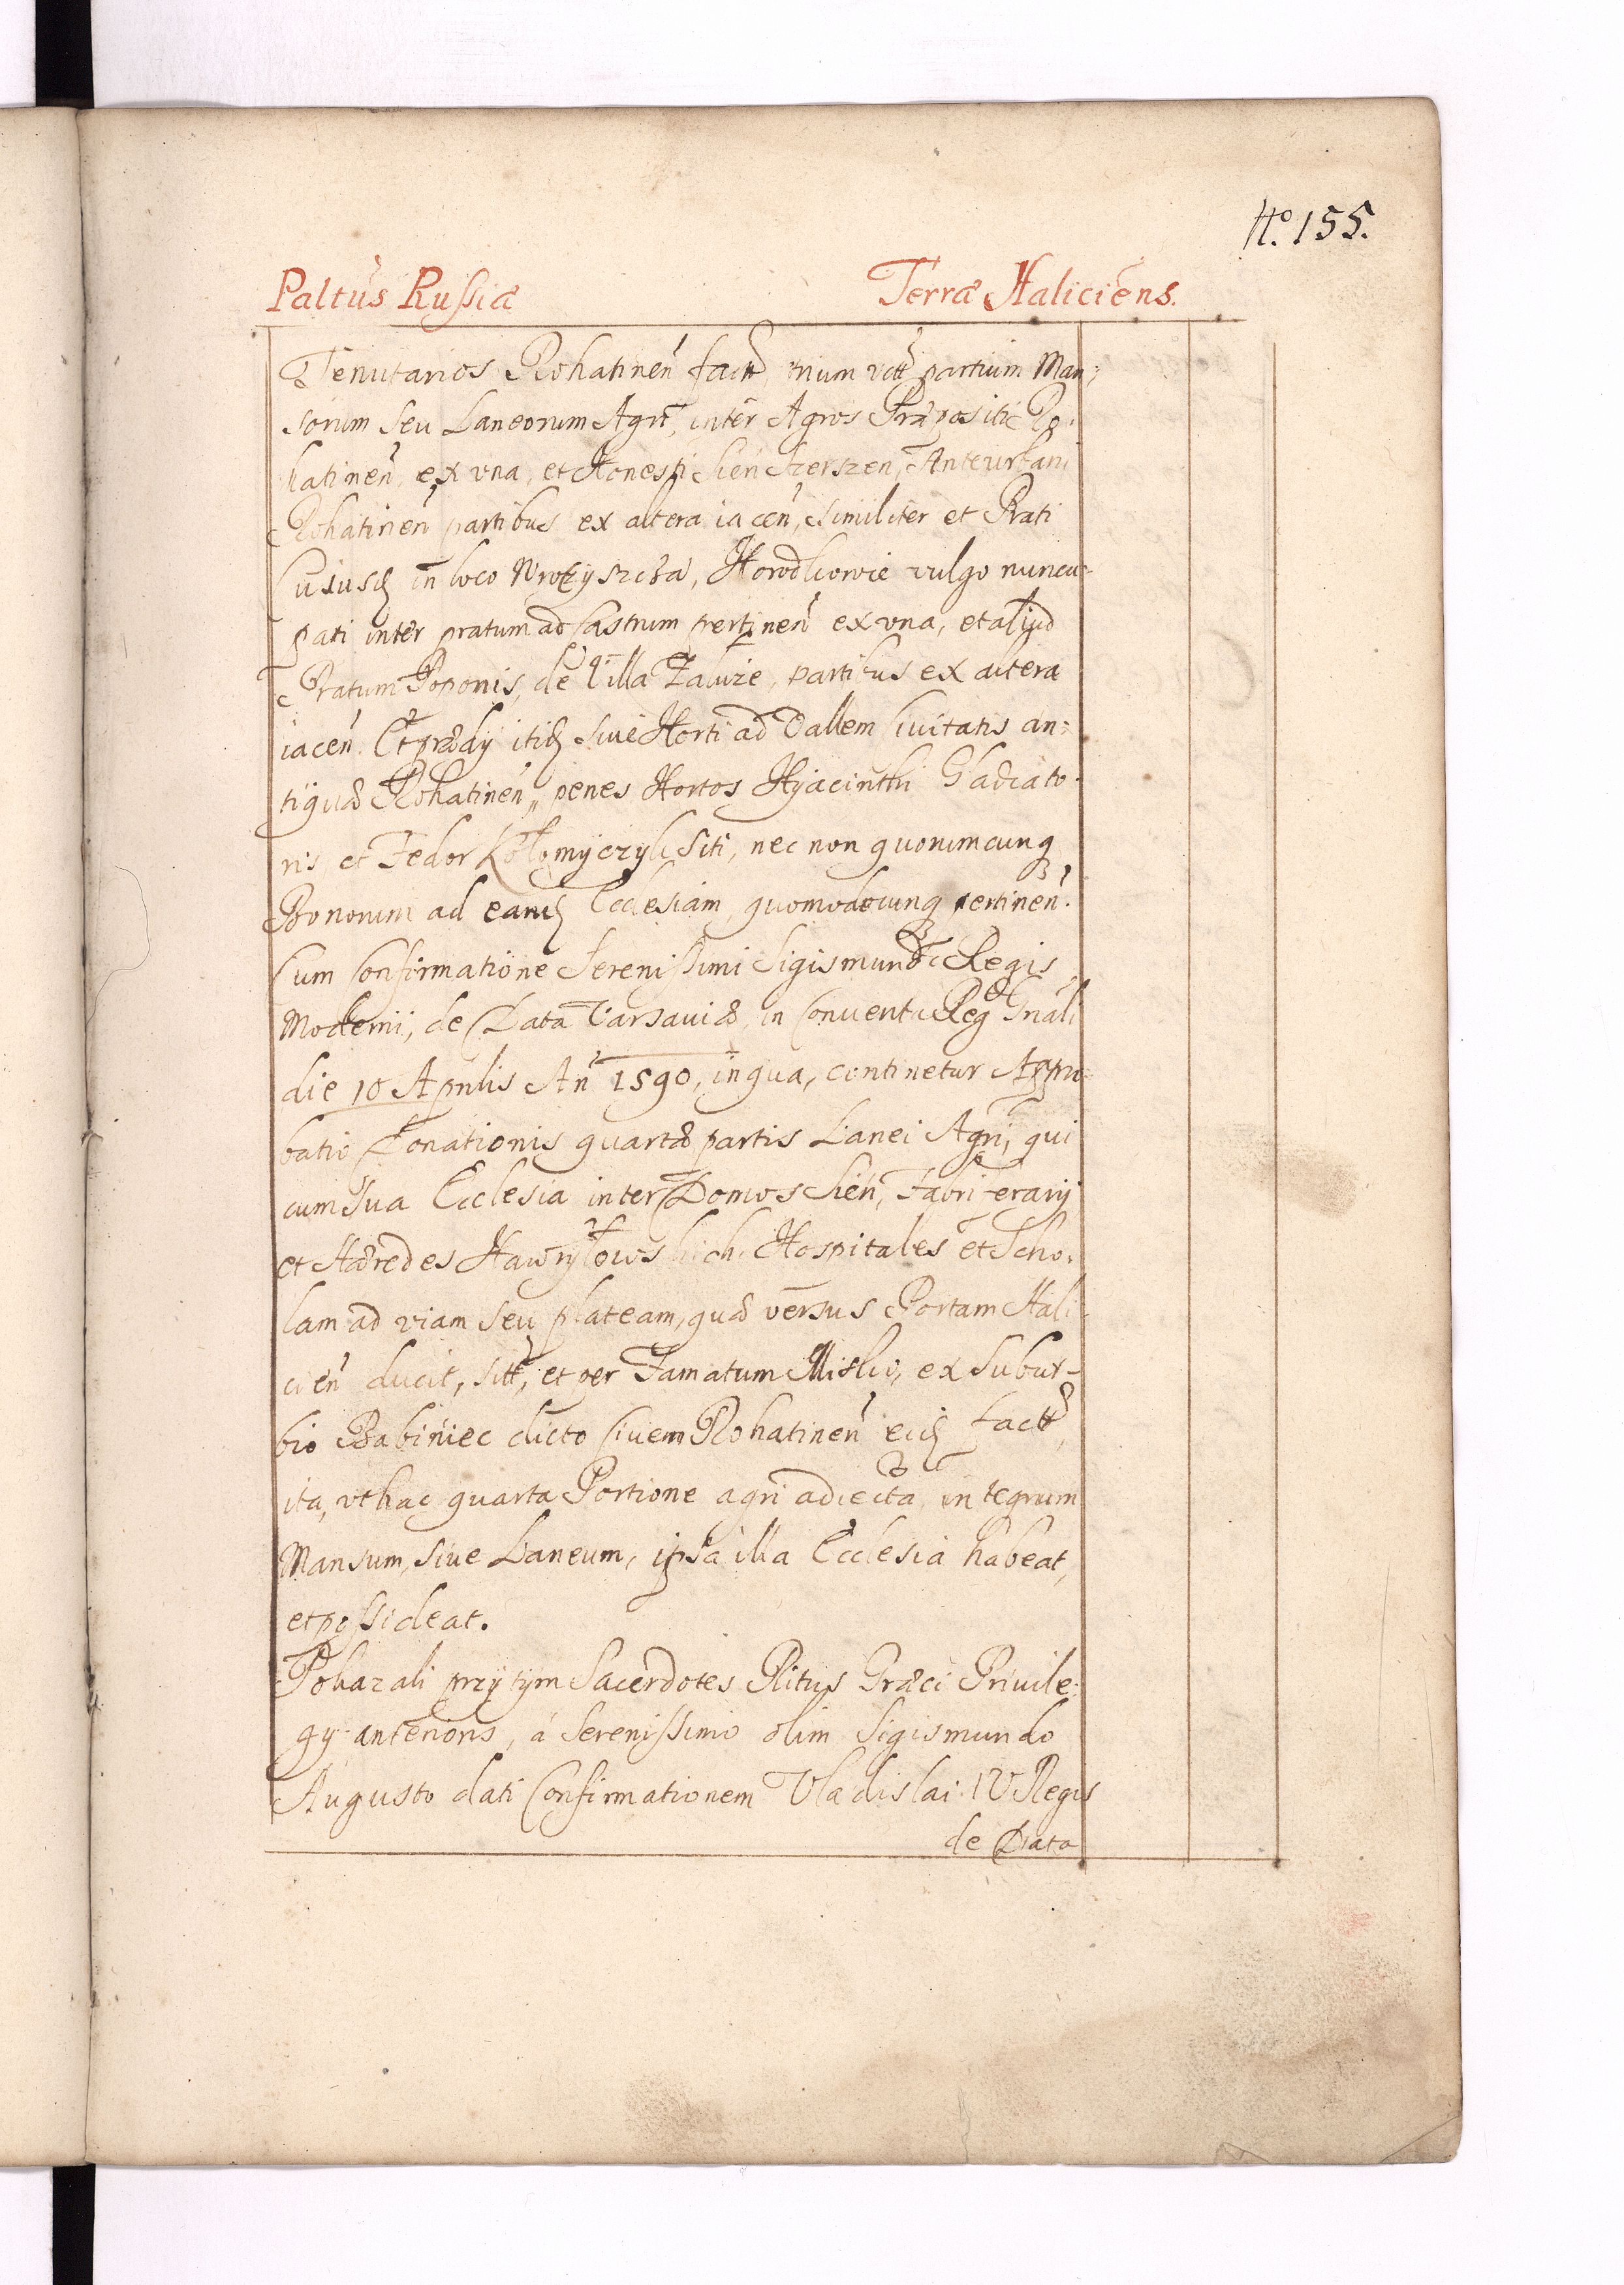 No. 155.
Paltūs Russiæ Terræ Haliciens.
Tenutarios Rohatinen̄ factæ, trium vtt partium Man=
sorum seu Laneorum Agri, inter Agros Præpositi Ro-
hatinen̄ ex vna, et Honesti Sien Szerszen, Anteurbani
Rohatinen̄ partibus ex altera iacen̄, similiter et Prati
in loco Horodkowie vulgo nuncu-
pati inter pratum ad Castrum pertinen̄ ex vna, et aliud
Pratum Poponis, de Villa Zaluże, partibus ex altera
iacen̄. Et prædij itid siue Horti ad Vallem Ciuitatis an=
tiquæ Rohatinen̄, penes Hortos Hyacinthi Gladiato-
ris, et Fedor Kołomyczyk siti, nec non quorumcunq
Bonorum ad eand Ecclesiam, quomodocunq pertinen̄.
Cum Confirmatione Serenissimi Sigismundi Regis
Moderni, de Data Varsauiæ, in Conventu Reg Gnāli
die 10 Aprilis An̄ 1590, in qua, continetur Appro-
batio Donationis quartæ partis Lanei Agri, qui
cum sua Ecclesia inter Domos Sień, Fabri ferarij
et Hæredes Hawryłowskich, Hospitales et Scho-
lam ad viam seu plateam, quæ versus Portam Hali-
cien̄ ducit, sitt, et per Famatum Misko, ex Subur-
bio Babiniec dicto Ciuem Rohatinen̄ eid factæ,
ita, vt hac quarta Portione agri adiecta, integrum
Mansum, siue Laneum, ipsa illa Ecclesia habeat,
et possideat.
Pokazali przytym Sacerdotes Ritus Græci Priuile-
gy anterioris, á Serenissimo olim Sigismundo
Augusto dati Confirmationem Vladislai IV Regis
de Data